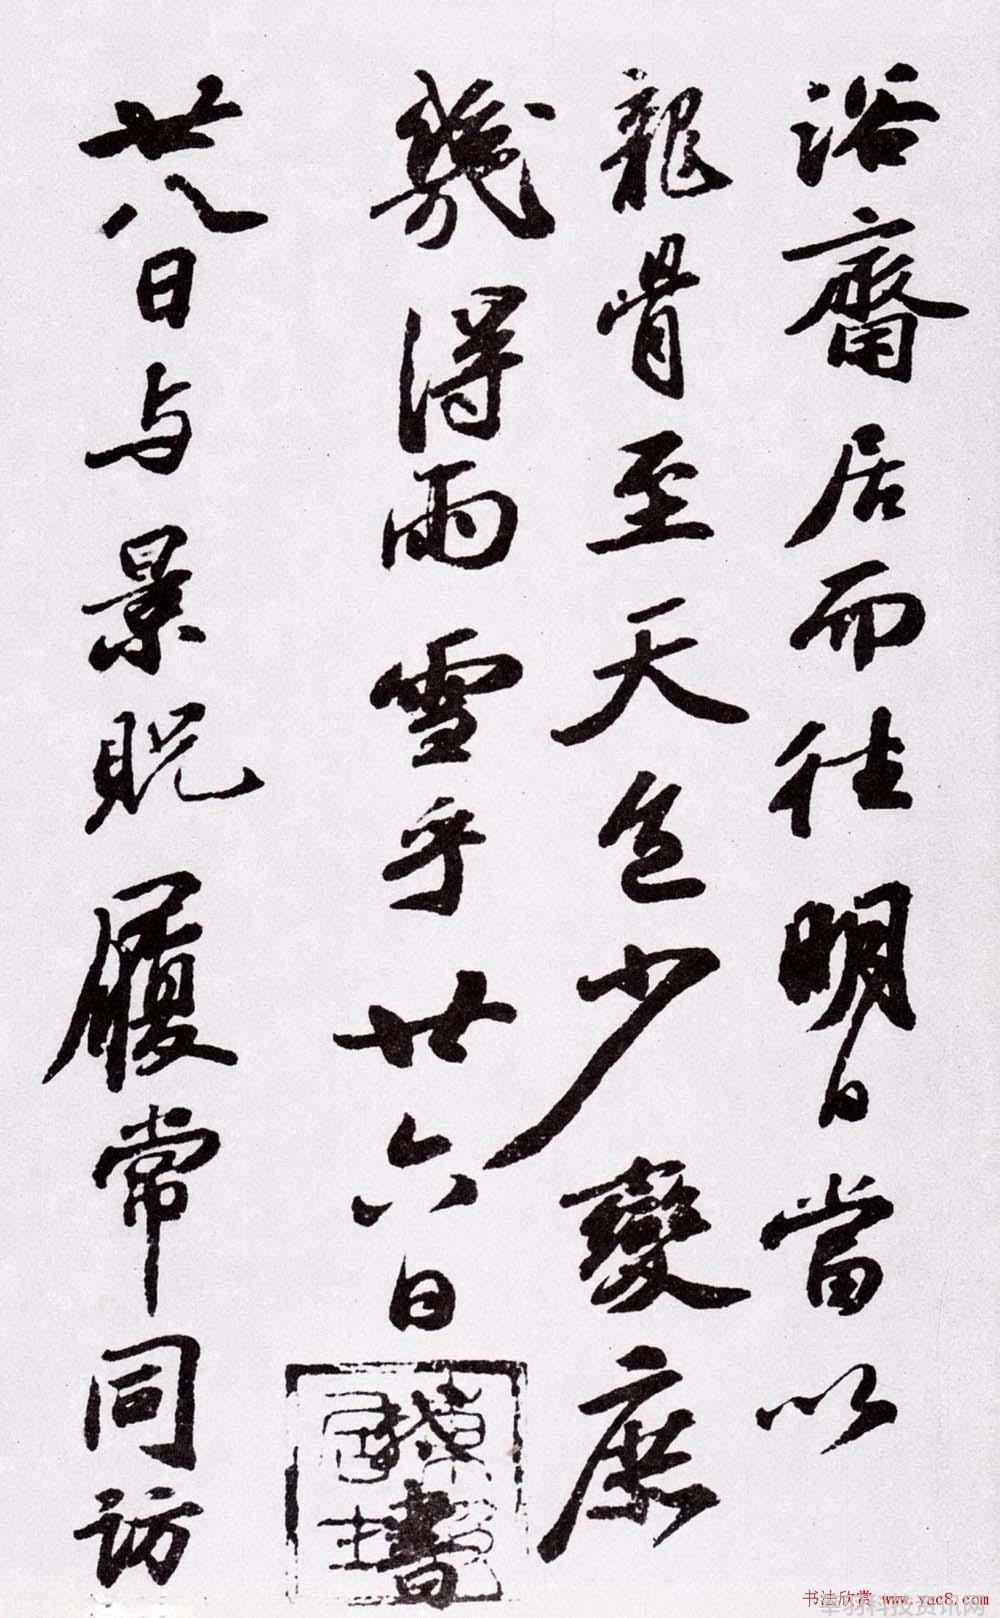 浴齋居而往明日當以
龍骨至天色少變庶
幾得雨雪乎廿六日書
廿八日与景貺履常同訪
书法欣赏 www.yac8.com